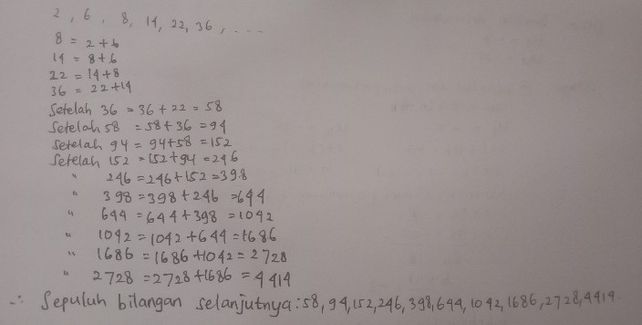 2, 6, 8, 14, 22, 36, ....
8 = 2+6
14 = 8+6
22 = 14+8
36 = 22+14
Setelah 36 = 36 + 22 = 58
Setelah 58 = 58 + 36 = 94
Setelah 94 = 94+58 = 152
Setelah 152 = 152+94 = 246
" 246 = 246+152 = 398
" 398 = 398+246 = 644
" 644 = 644+398 = 1042
" 1042 = 1042+644 = 1686
" 1686 = 1686+1042 = 2728
" 2728 = 2728+1686 = 4414
∴ Sepuluh bilangan selanjutnya: 58, 94, 152, 246, 398, 644, 1042, 1686, 2728, 4414.